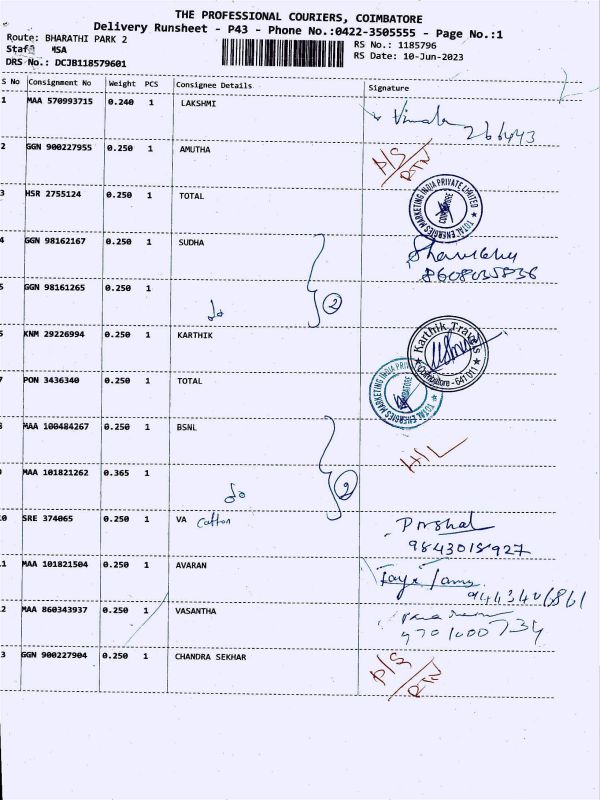 THE PROFESSIONAL COURIERS, COIMBATORE
Delivery Runsheet - P43 - Phone No.:0422-3505555 - Page No.:1
Route: BHARATHI PARK 2
RS No.: 1185796
Staff MSA
RS Date: 10-Jun-2023
DRS No.: DCJB118579601
S No Consignment No Weight PCS Consignee Details Signature
1 MAA 570993715 0.240 1 LAKSHMI Vimala 266443
2 GGN 900227955 0.250 1 AMUTHA P/S RTN
3 HSR 2755124 0.250 1 TOTAL TOTAL ENERGIES MARKETING INDIA PRIVATE LIMITED COIMBATORE
4 GGN 98162167 0.250 1 SUDHA 2 8608035836
5 GGN 98161265 0.250 1 do
6 KNM 29226994 0.250 1 KARTHIK Karthik Travels Coimbatore - 641 011
7 PON 3436340 0.250 1 TOTAL TOTAL ENERGIES MARKETING INDIA PRI
8 MAA 100484267 0.250 1 BSNL 2 H/L
9 MAA 101821262 0.365 1 do
10 SRE 374065 0.250 1 VA Cotton 9843018927
11 MAA 101821504 0.250 1 AVARAN
12 MAA 860343937 0.250 1 VASANTHA
13 GGN 900227904 0.250 1 CHANDRA SEKHAR P/S RTN